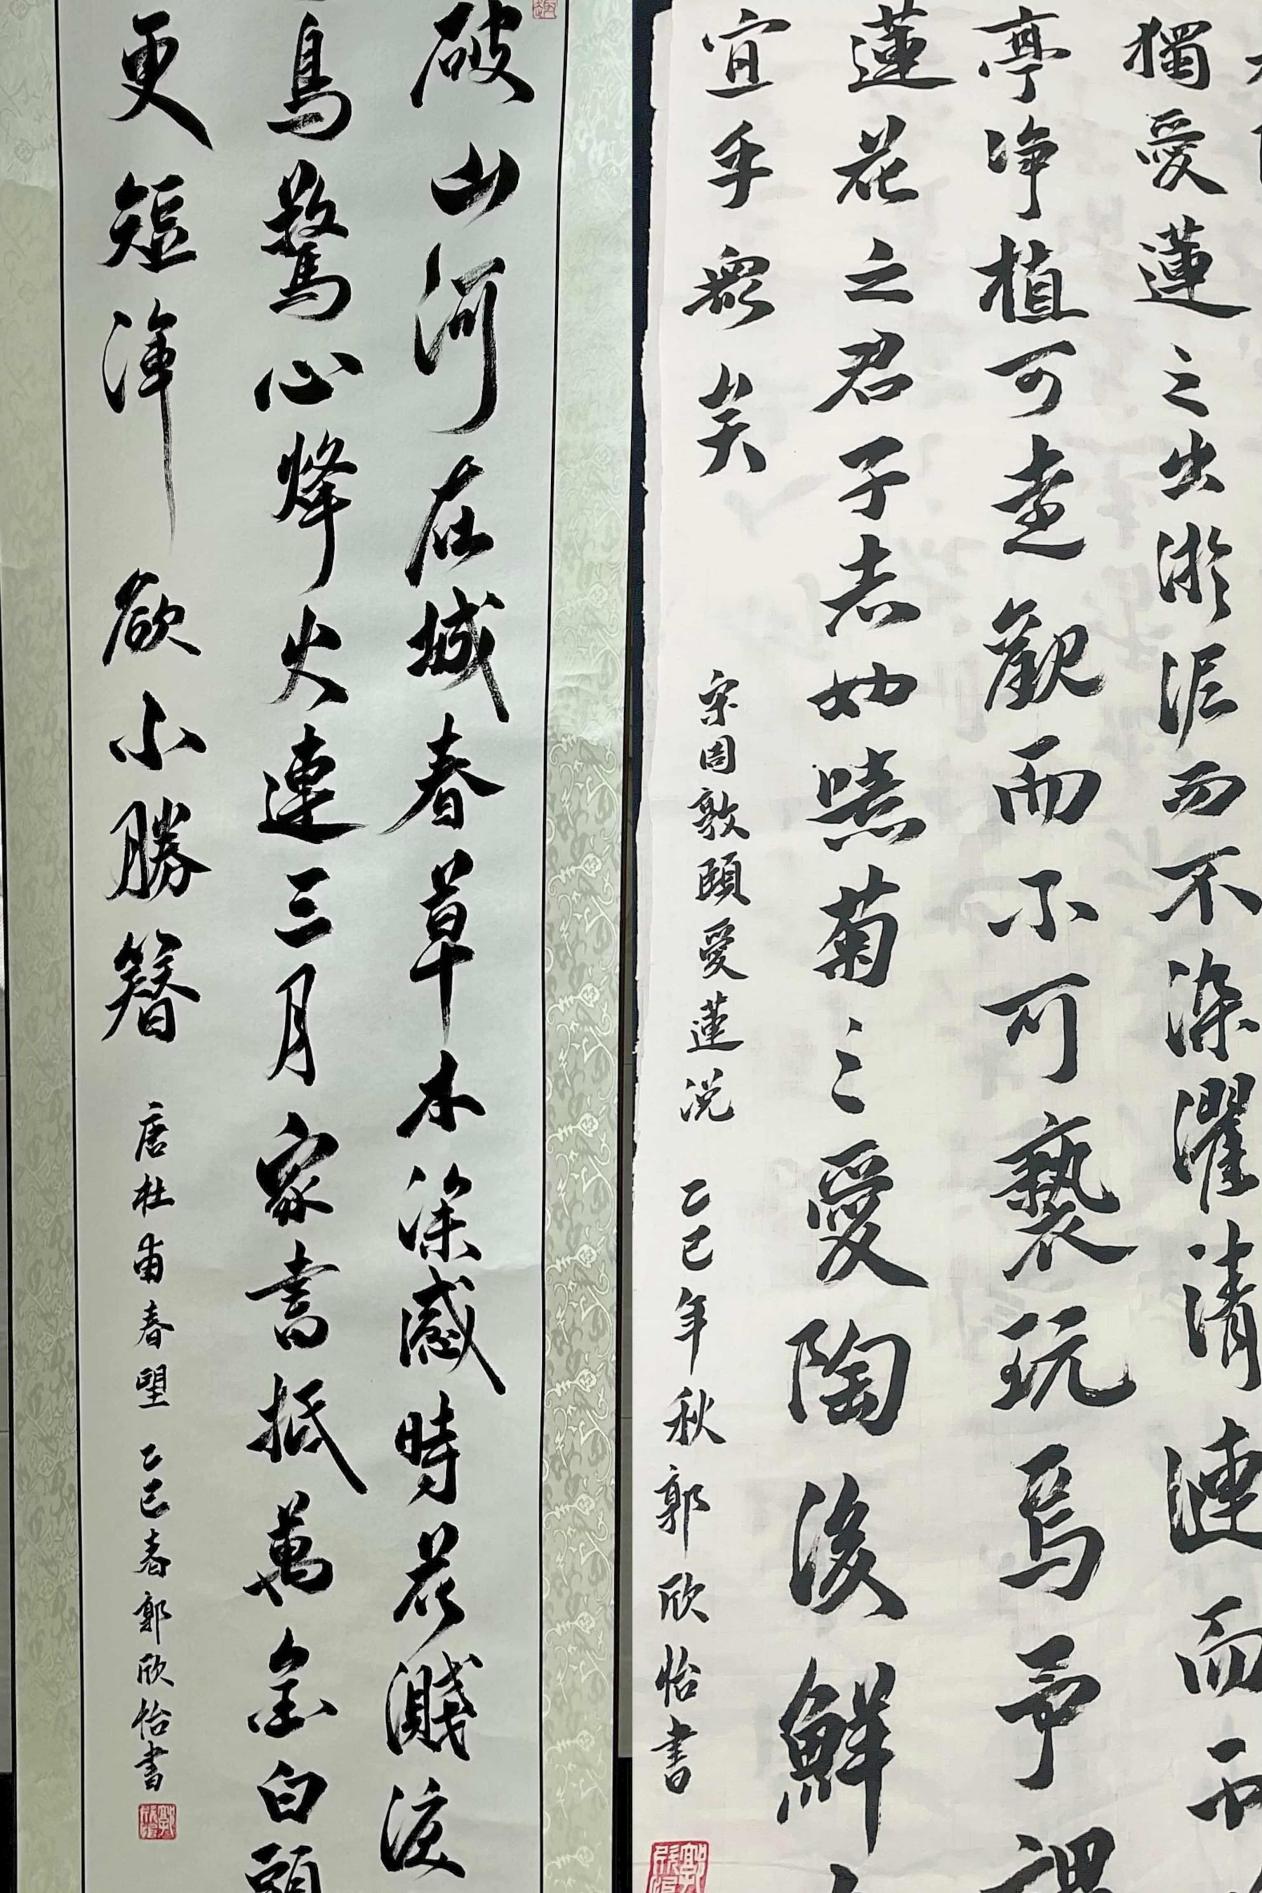 獨愛蓮之出淤泥而不染濯清漣而不
亭净植可遠觀而不可褻玩焉予謂
蓮花之君子者也噫菊之愛陶後鮮
宜乎眾矣
宋周敦頤愛蓮說 乙巳年秋郭欣怡書
破山河在城春草木深感時花濺淚
鳥驚心烽火連三月家書抵萬金白頭
更短渾欲不勝簪
唐杜甫春望 乙巳春郭欣怡書